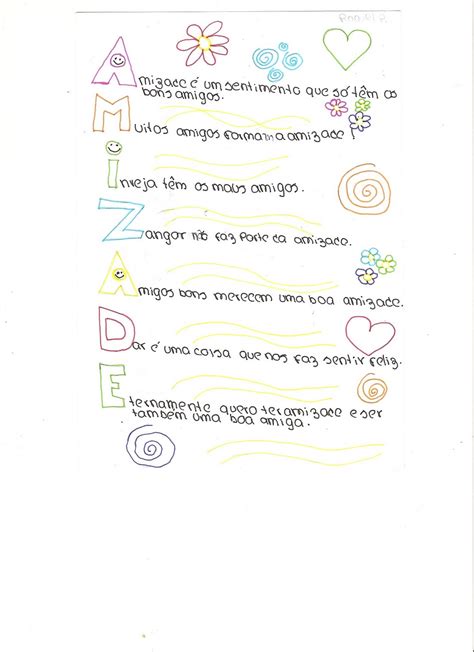 Amizade é um sentimento que só têm os
bons amigos.
Muitos amigos formam a amizade !
Inveja têm os maus amigos.
Zangar não faz parte da amizade.
Amigos bons merecem uma boa amizade.
Dar é uma coisa que nos faz sentir feliz.
Eternamente quero ter amizade e ser
também uma boa amiga.